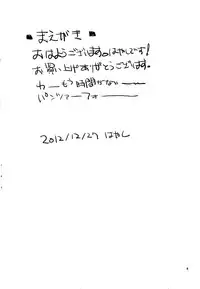 ■まえがき■
おはようございます。はやしです!
お買い上げありがとうございます。
わーもう時間がないー
パンツァーフォー
2012/12/27 はやし